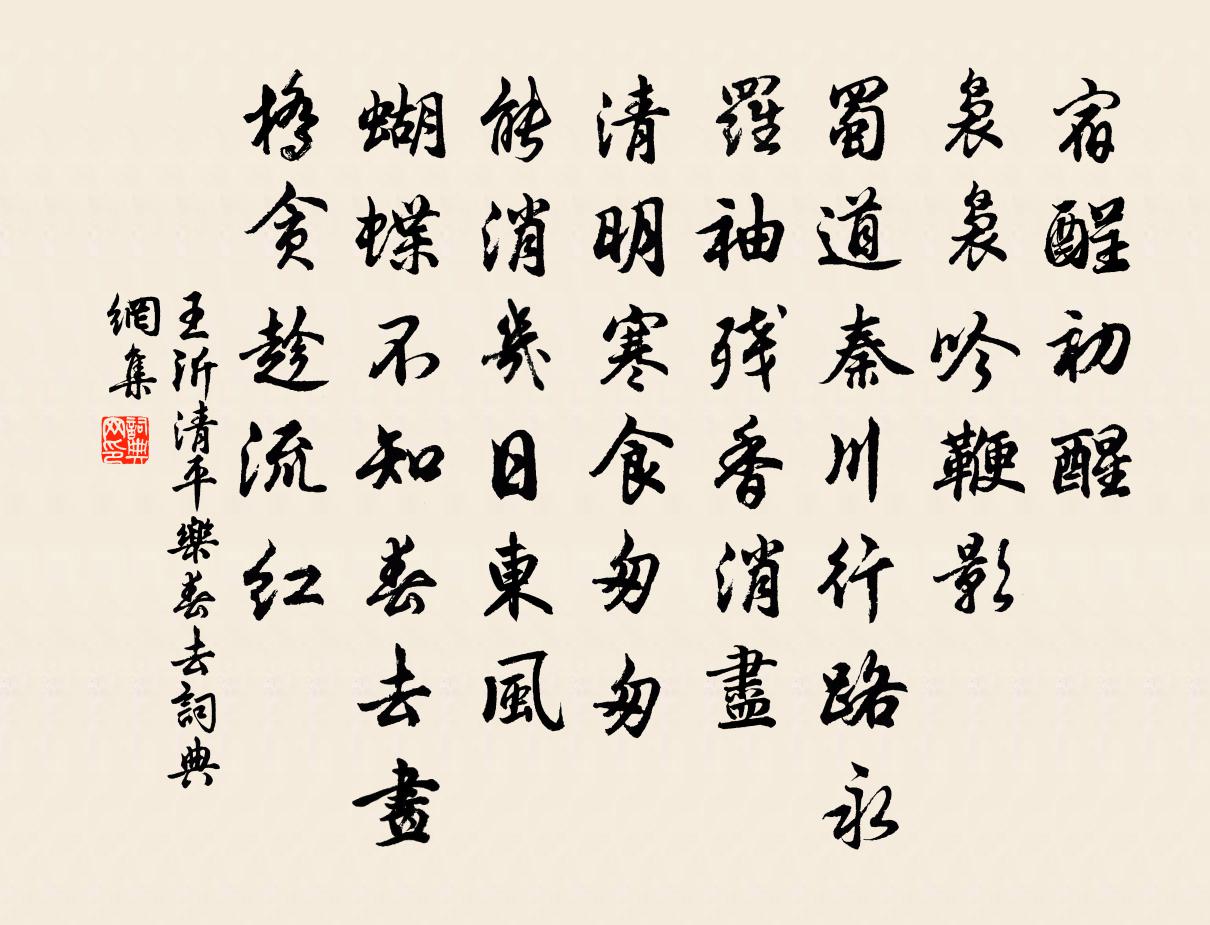 宿醒初醒
裊裊吟鞭影
蜀道秦川行路永
羅袖殘香消盡
清明寒食匆匆
能消幾日東風
蝴蝶不知春去
橋貪趁流紅
王沂清平樂春去詞典
網集
詞典網印